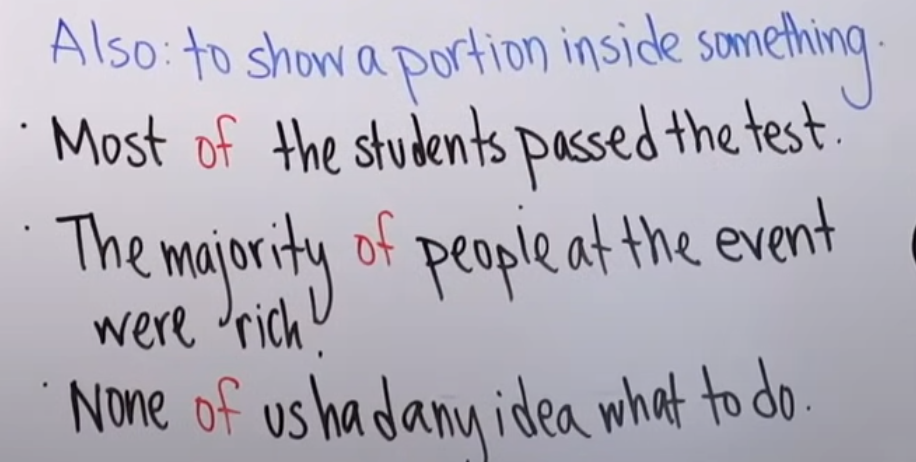 Also: to show a portion inside something.
· Most of the students passed the test.
· The majority of people at the event
were rich.
· None of us had any idea what to do.